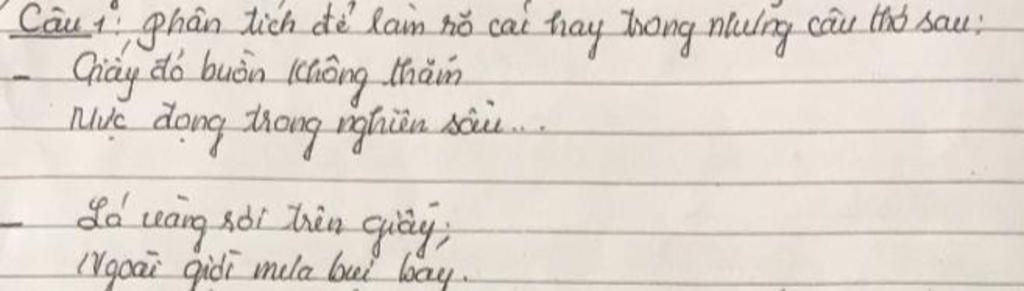 Câu 1: phân tích để làm rõ cái hay trong những câu thơ sau:
- Giấy đỏ buồn không thắm
Mực đọng trong nghiên sầu...
- Lá vàng rơi trên giấy;
Ngoài giời mưa bụi bay.